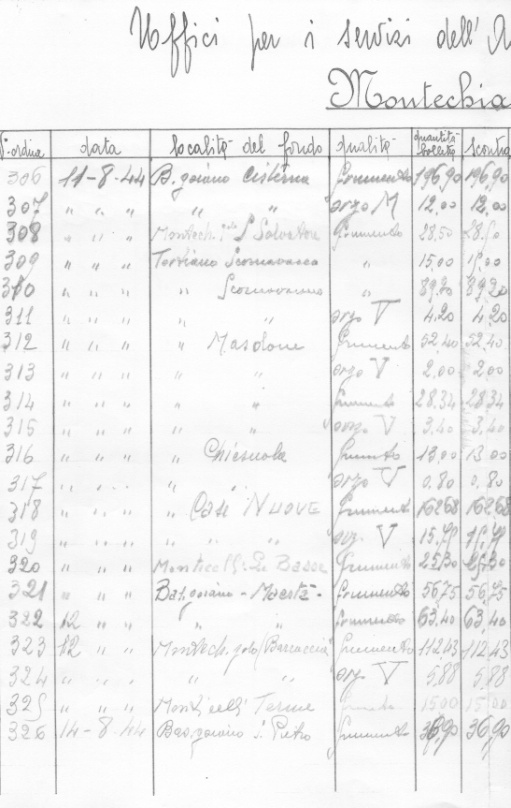 Uffici per i servizi dell' A
Montechia
N. ordine data località del fondo qualità quantità bolletta scontri
306 11-8-44 B.goiano Cisterna frumento 196,90 196,90
307 " " " " " orzo M 12,00 12,00
308 " " " Montech. S Salvatore frumento 28,50 28,50
309 " " " Tortiano Scornavacca " 15,00 15,00
310 " " " " Scornavacca " 89,20 89,20
311 " " " " " orzo V 4,20 4,20
312 " " " " Masdone frumento 52,40 52,40
313 " " " " " orzo V 2,00 2,00
314 " " " " " frumento 28,34 28,34
315 " " " " " orzo V 3,40 3,40
316 " " " " Chiesuola frumento 13,00 13,00
317 " " " " " orzo V 0,80 0,80
318 " " " " Case NUOVE frumento 162,68 162,68
319 " " " " " orzo V 15,75
320 " " " Monticelli Basse frumento 25,30
321 " " " Basgoiano - Maestà - frumento 56,75 56,75
322 12 " " " " frumento 63,40 63,40
323 12 " " Montech.golo (Barcaccia) frumento 112,43 112,43
324 " " " " " orzo V 5,88 5,88
325 " " " Monticelli Terme frumento 15,00 15,00
326 14-8-44 Basgoiano S. Pietro frumento 36,90 36,90